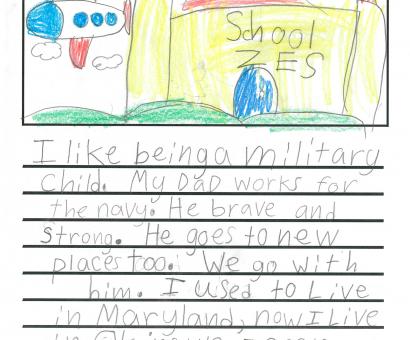 School
ZES
I like being a military
child. My Dad works for
the navy. He brave and
strong. He goes to new
places too. We go with
him. I used to Live
in Maryland, now I Live
in